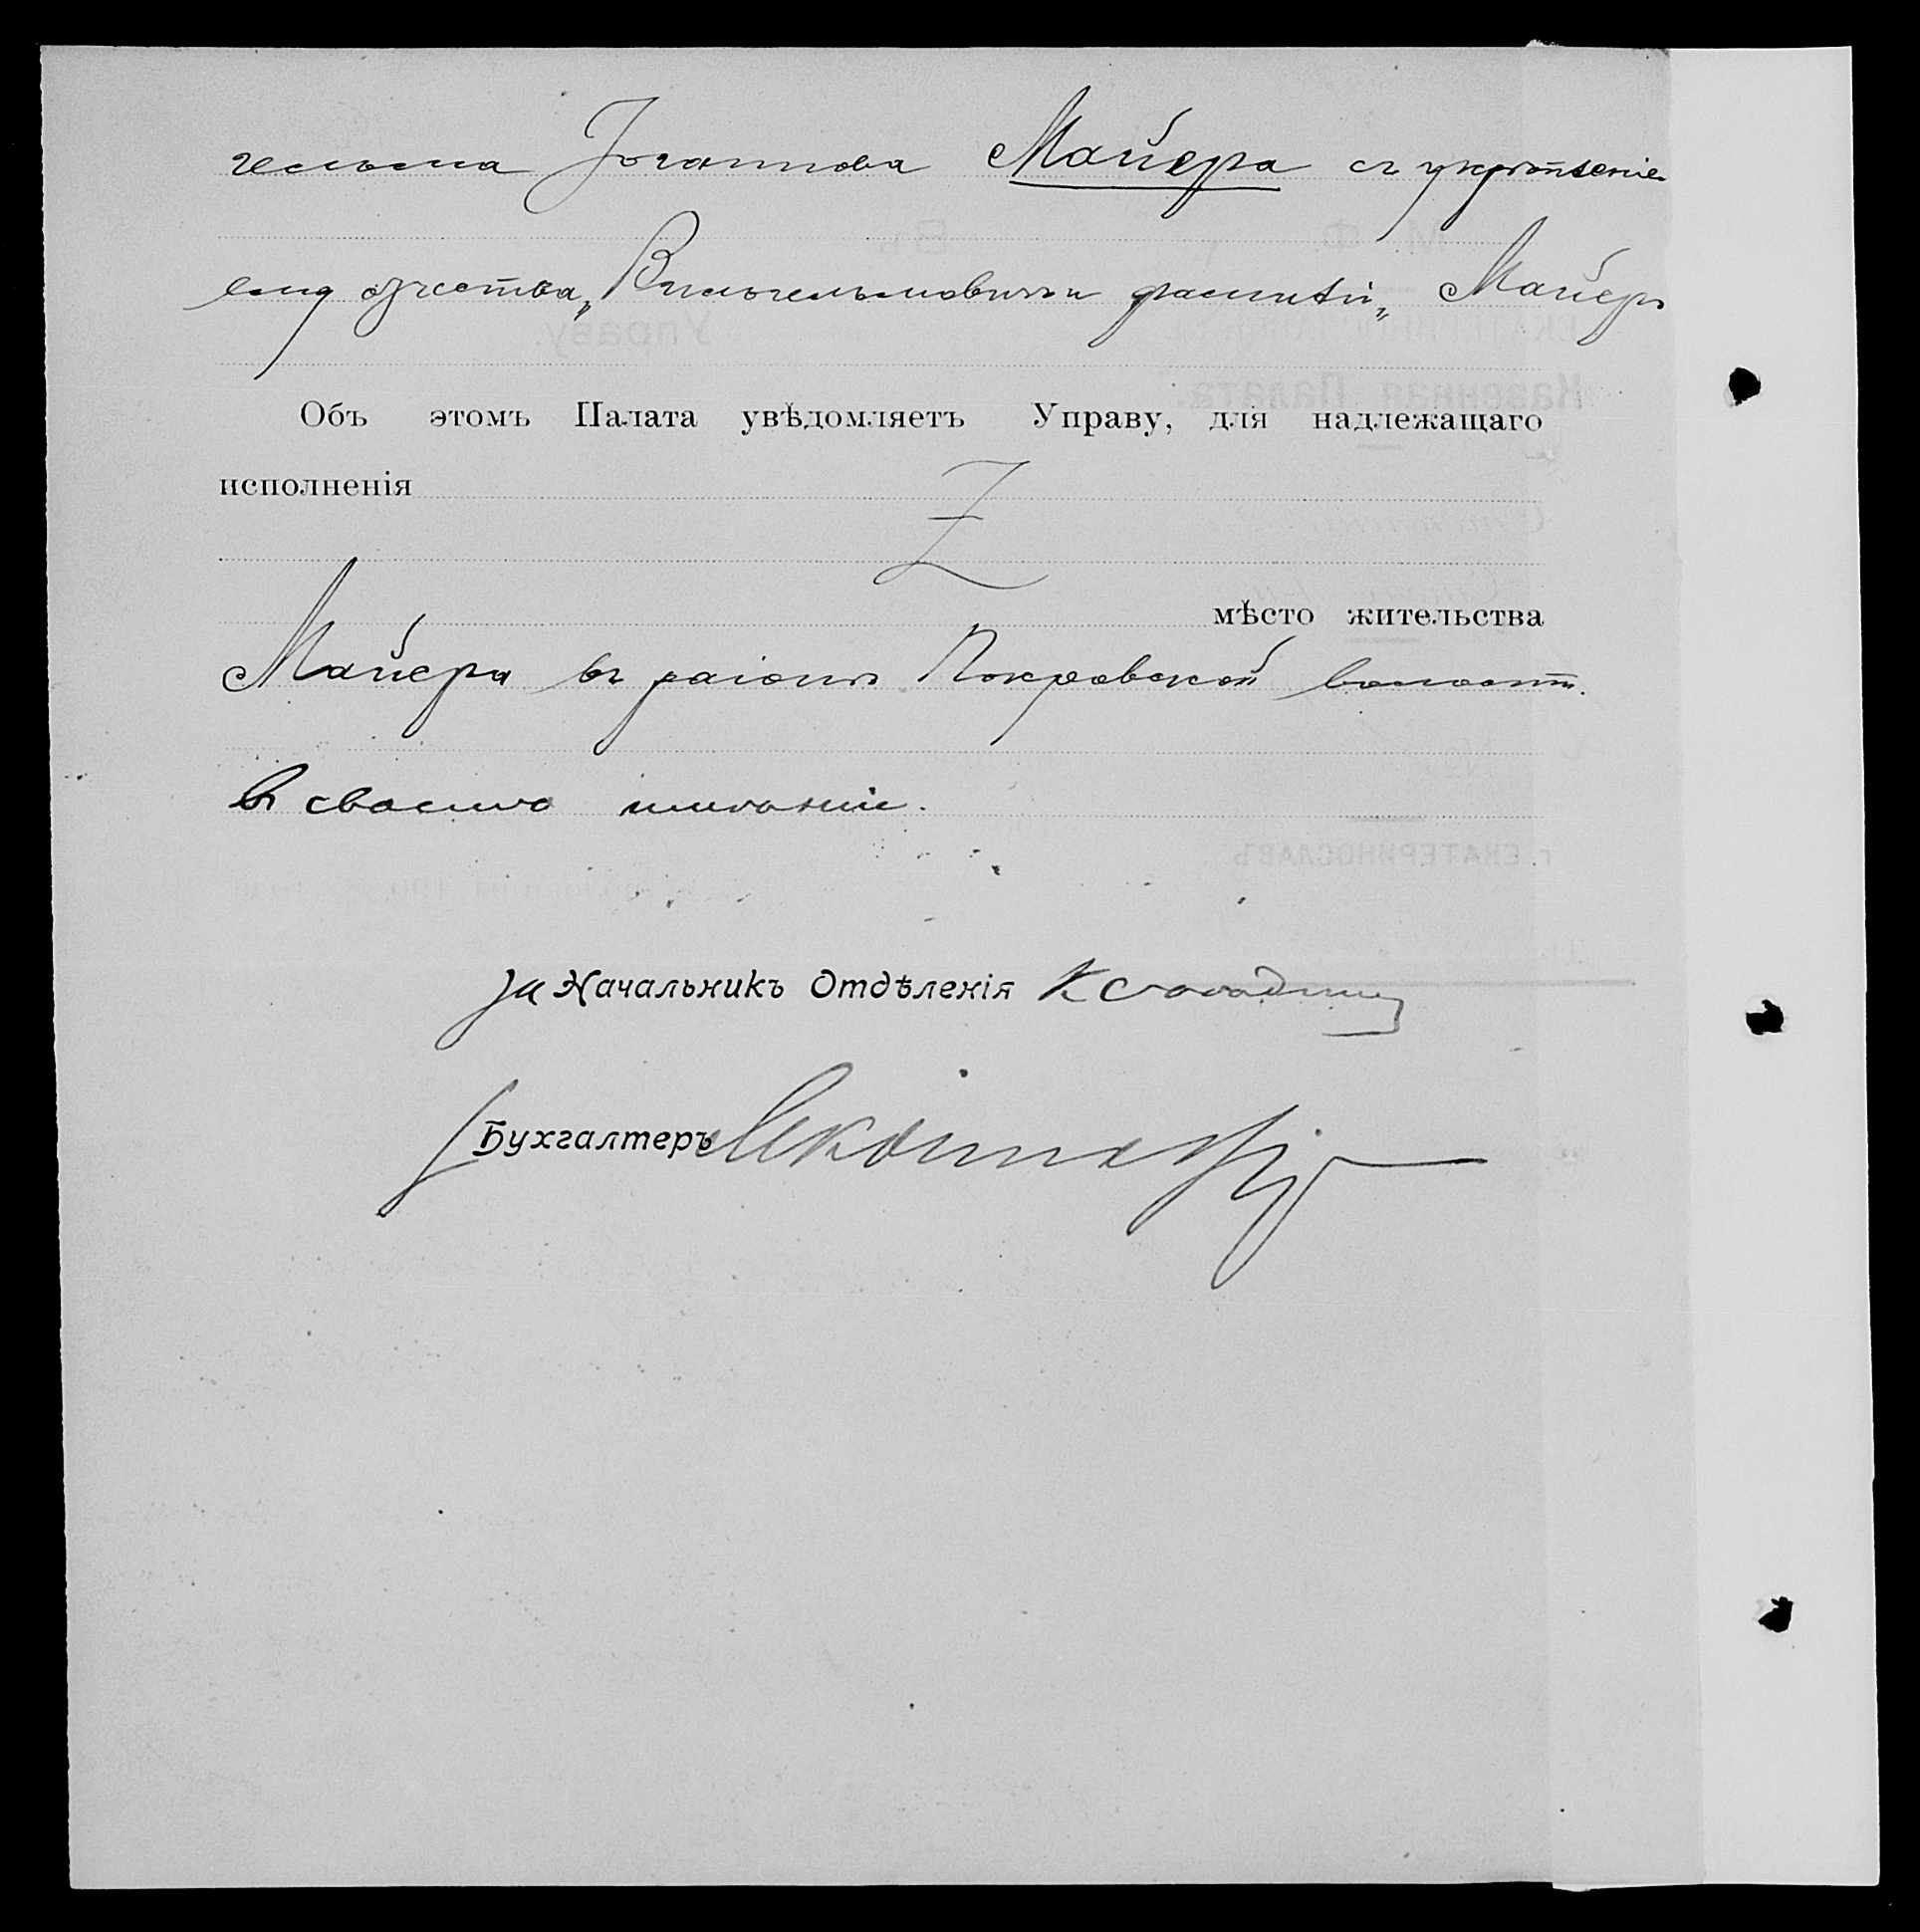 гельма Іоганнова Майера съ укрѣпленіе
ему отчества „Вильгельмовичъ и фамиліи „Майеръ
Объ этомъ Палата увѣдомляетъ Управу, для надлежащаго
исполненія
мѣсто жительства
Майера въ раіонѣ Покровской волости.
въ своемъ имѣніи.
За Начальникъ Отдѣленія
Бухгалтеръ
Управу.
Казенная Палата.
г. ЕКАТЕРИНОСЛАВЪ